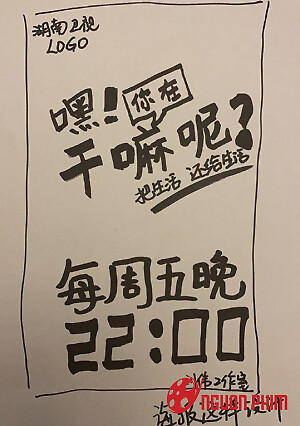 湖南卫视
LOGO
嘿!你在
干嘛呢?
把生活 还给生活
每周五晚
22:00
伟工作室
nguonphim
海报这样设计